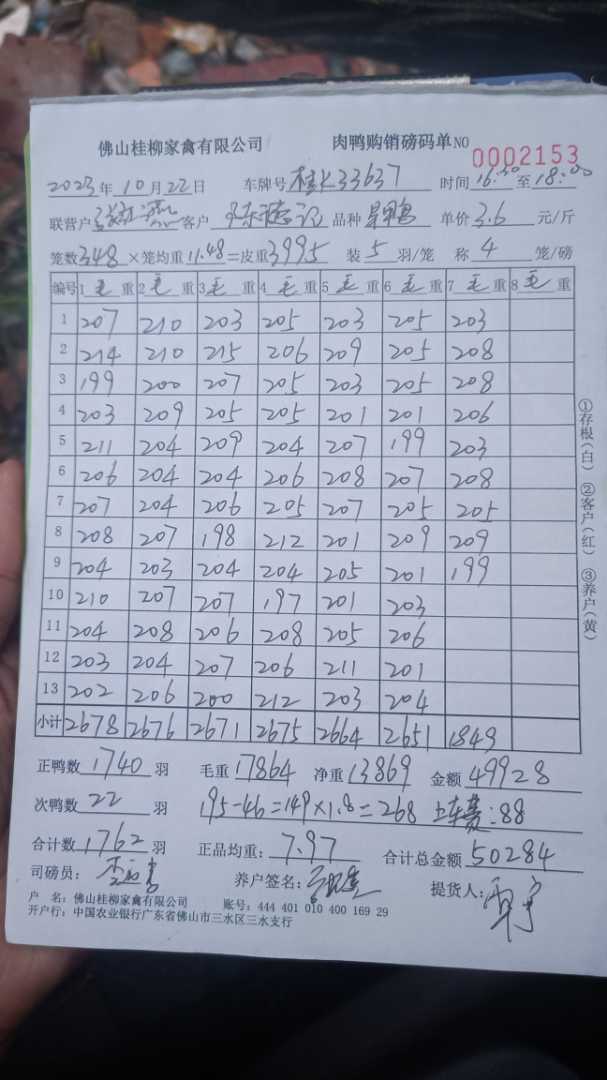 佛山桂柳家禽有限公司 肉鸭购销磅码单 NO 0002153
2023年10月22日 车牌号 桂K33637 时间 16:30至18:00
联营户 客户 品种 单价3.6元/斤
笼数348×笼均重11.48=皮重3995 装5羽/笼 称4笼/磅
编号 1毛重 2毛重 3毛重 4毛重 5毛重 6毛重 7毛重 8毛重
1 207 210 203 205 203 205 203
2 214 210 215 206 209 205 208
3 199 200 207 205 203 205 208
4 203 209 205 205 201 201 206
5 211 204 209 204 207 199 203
6 206 204 204 206 208 207 208
7 207 204 206 205 207 205 205
8 208 207 198 212 201 209 209
9 204 203 204 204 205 201 199
10 210 207 207 197 201 203
11 204 208 206 208 205 206
12 203 204 207 206 211 201
13 202 206 200 212 203 204
小计 2678 2676 2671 2675 2664 2651 1849
正鸭数1740羽 毛重17864 净重13869 金额49928
次鸭数22羽 195-46=149×1.8=268 上车费:88
合计数1762羽 正品均重:7.97 合计总金额50284
司磅员: 养户签名: 提货人:
户 名:佛山桂柳家禽有限公司 账号:444 401 010 400 169 29
开户行:中国农业银行广东省佛山市三水区三水支行
①存根(白) ②客户(红) ③养户(黄)